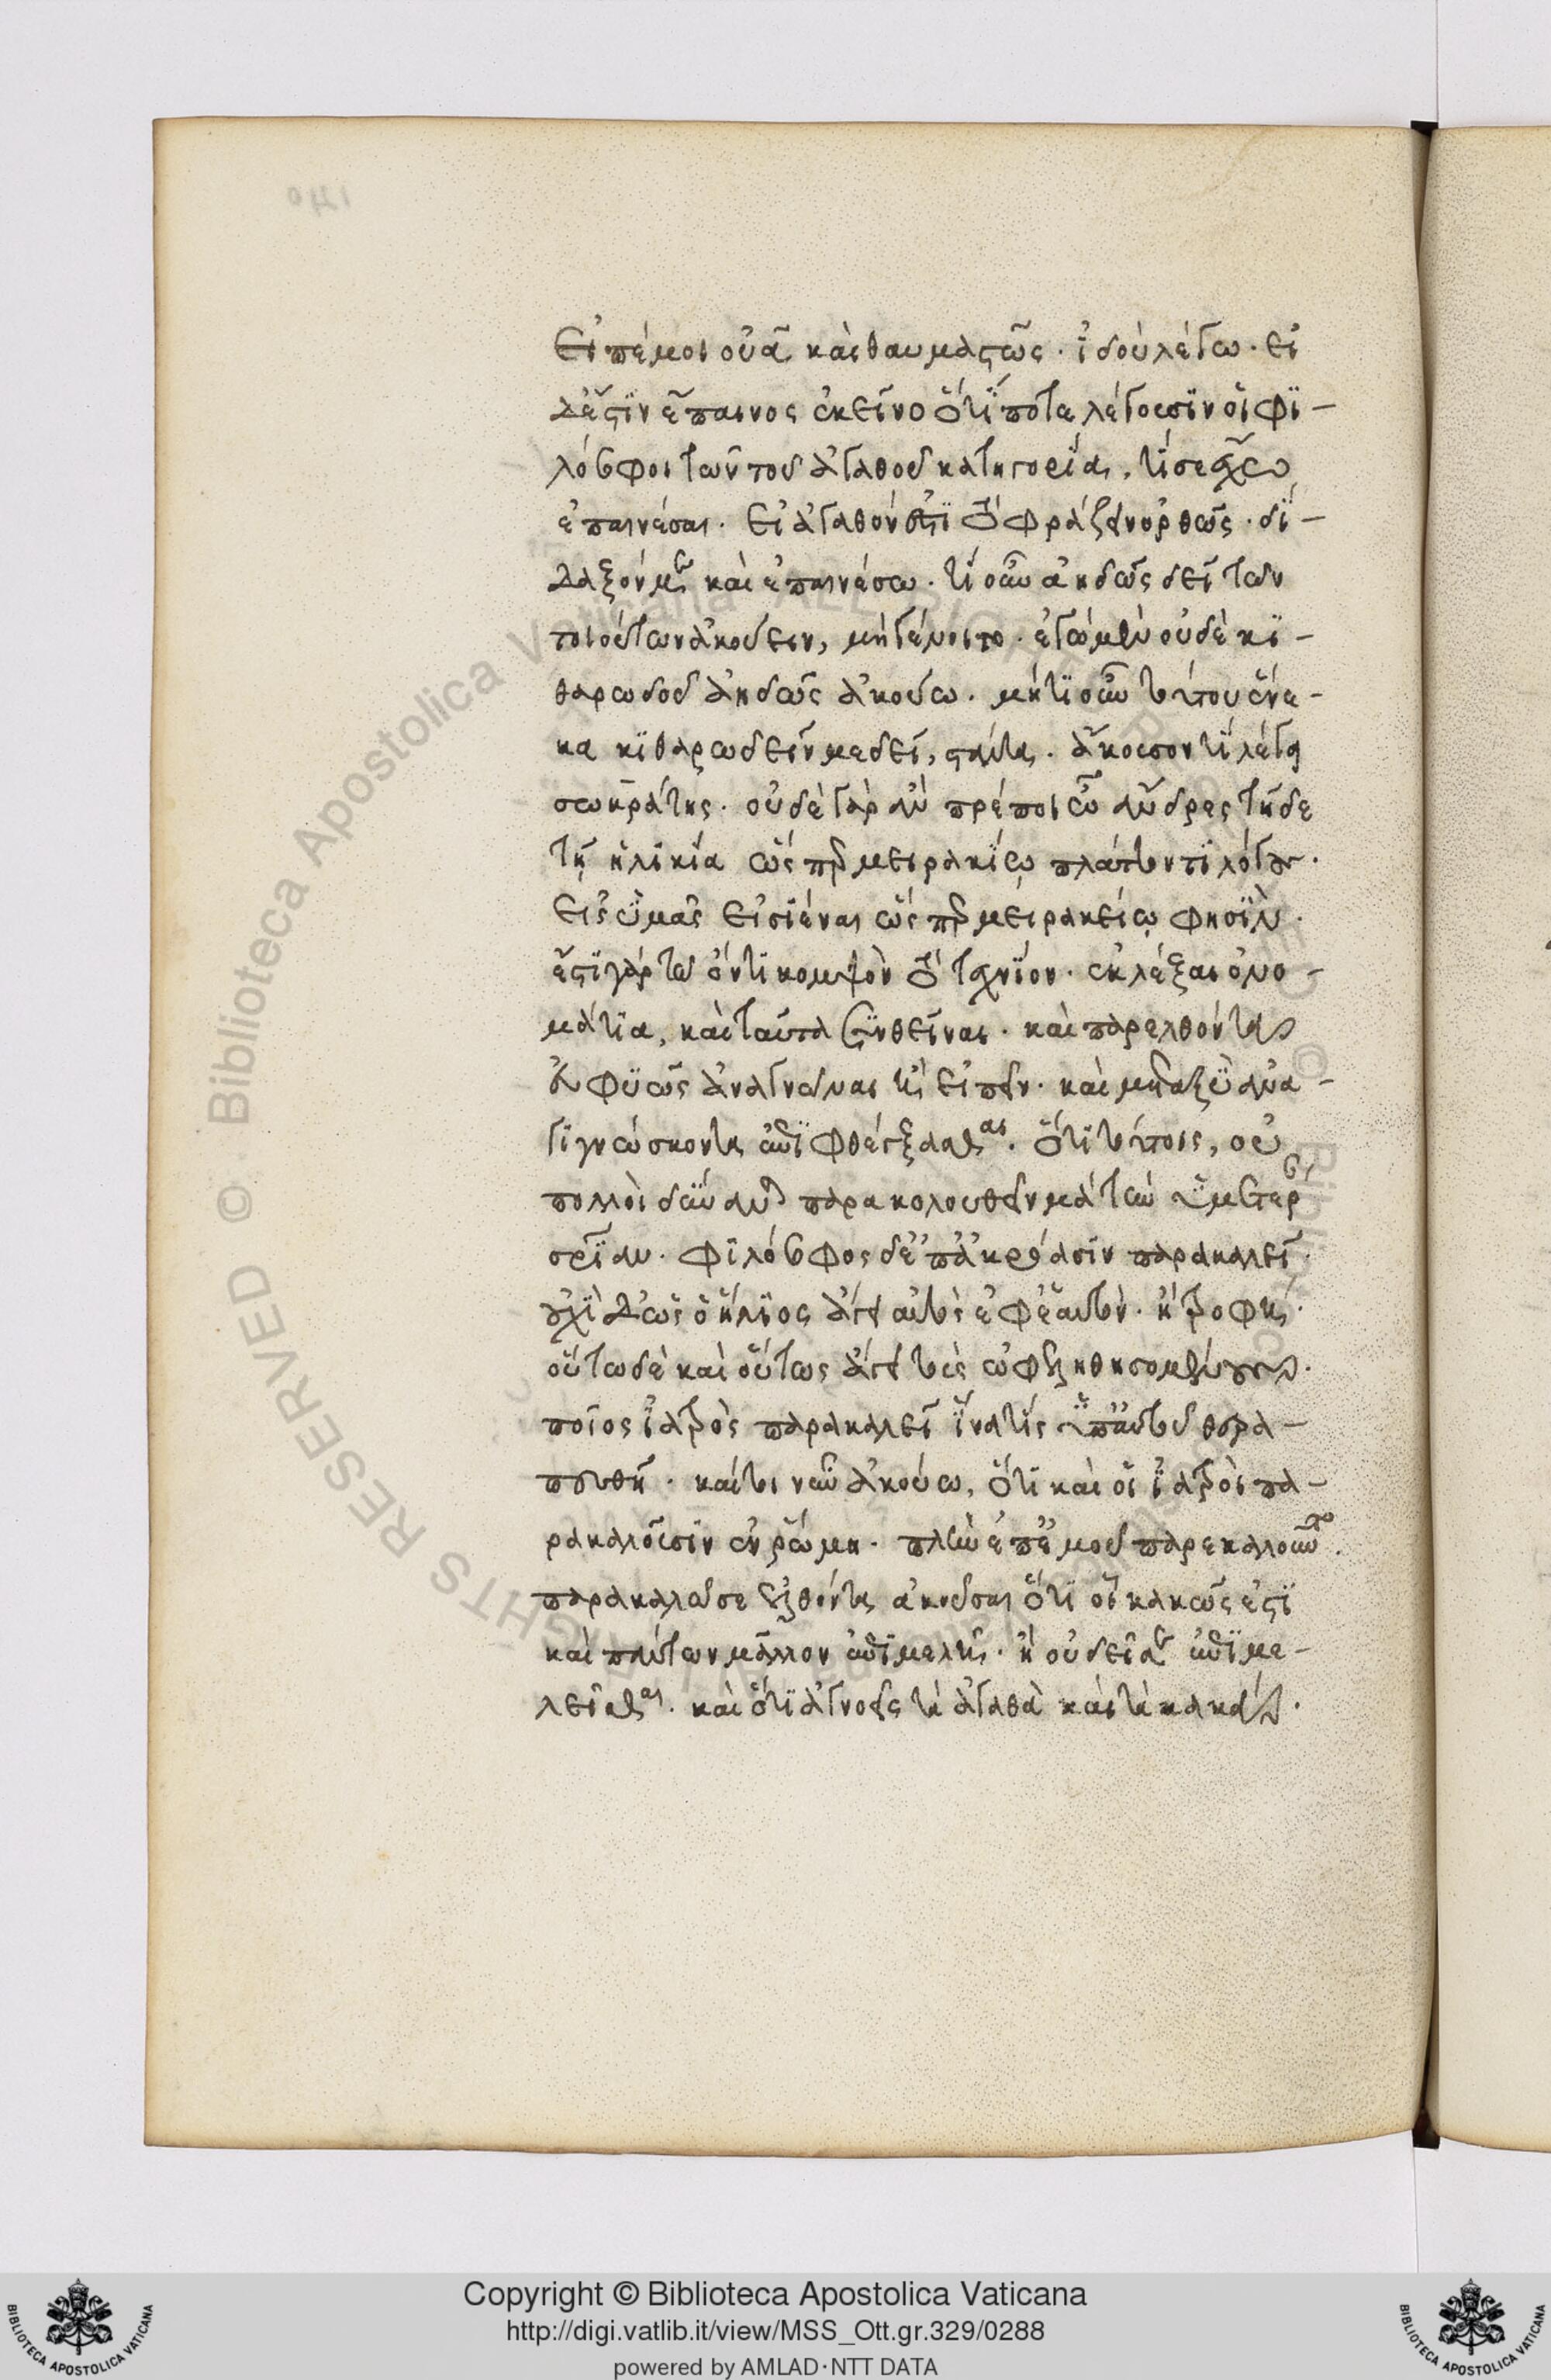 Εἰπέ μοι οὐᾶ καὶ θαυμαστῶς. ἰδοὺ λέγω. εἰ
δ' ἔστιν ἔπαινος ἐκεῖνο ὅ τί ποτε λέγουσιν οἱ φι-
λόσοφοι τῶν τοῦ ἀγαθοῦ κατηγορίᾳ, τί σε ἔχω
ἐπαινέσαι. εἰ ἀγαθόν ἐστι τὸ φράζειν ὀρθῶς. δί-
δαξόν με καὶ ἐπαινέσω. τί οὖν ἀηδῶς δεῖ τῶν
τοιούτων ἀκούειν, μὴ γένοιτο. ἐγὼ μὲν οὐδὲ κι-
θαρωδοῦ ἀηδῶς ἀκούω. μή τι οὖν τούτου ἕνε-
κα κιθαρωδεῖν με δεῖ, στάντα. ἄκουσον τί λέγει
σωκράτης. οὐδὲ γὰρ ἂν πρέποι ὦ ἄνδρες τῆδε
τῇ ἡλικία ὥσπερ μειρακίῳ πλάττοντι λόγους.
εἰς ὑμᾶς εἰσιέναι ὥσπερ μειρακείῳ φησίν.
ἔστι γὰρ τῷ ὄντι κομψὸν τὸ τεχνίον. ἐκλέξαι ὀνο-
μάτια, καὶ ταῦτα συνθεῖναι. καὶ παρελθόντα
εὐφυῶς ἀναγνῶναι ἢ εἰπεῖν. καὶ μεταξὺ ἀνα-
γιγνώσκοντα ἐπιφθέγξασθαι. ὅτι τούτοις, οὐ
πολλοὶ δύνανται παρακολουθεῖν μὰ τὴν ὑμετέραν σω-
τρίαν. φιλόσοφος δ' ἐπ' ἀκρόασιν παρακαλεῖ.
οὐχὶ δ' ὡς ὁ ἥλιος ἄγει αὐτὸς ἐφ' ἑαυτὸν. ἡ τροφὴ.
οὕτω δὲ καὶ οὕτως ἄγει τοὺς ὠφεληθησομένους.
ποῖος ἰατρὸς παρακαλεῖ ἵνα τίς ὑπ' αὐτοῦ θερα-
πευθῆ. καίτοι νῦν ἀκούω, ὅτι καὶ οἱ ἰατροὶ πα-
ρακαλοῦσιν ἐν ῥώμη. πλὴν ἐπ' ἐμοῦ παρεκαλοῦντο.
παρακαλῶ σε ἐλθόντα ἀκοῦσαι ὅτι σοι κακῶς ἐστὶ
καὶ πάντων μᾶλλον ἐπιμελῆ. ἢ οὐ δεῖ σε ἐπιμε-
λεῖσθαι. καὶ ὅτι ἀγνοεῖς τὰ ἀγαθὰ καὶ τὰ κακά.
Copyright © Biblioteca Apostolica Vaticana
http://digi.vatlib.it/view/MSS_Ott.gr.329/0288
powered by AMLAD·NTT DATA